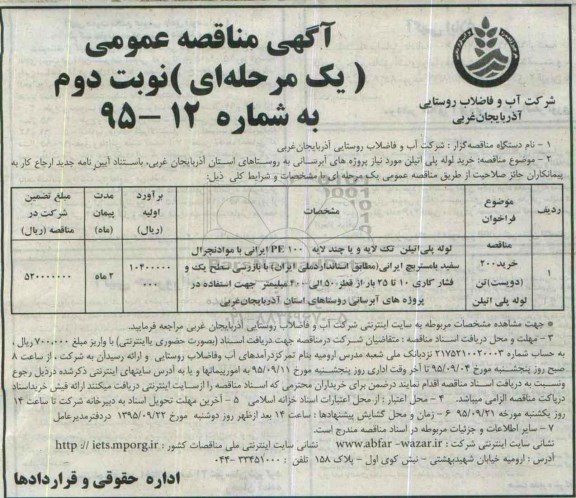 آگهی مناقصه عمومی
( یک مرحله‌ای )نوبت دوم
به شماره ۱۲ -۹۵
شرکت آب و فاضلاب روستایی
آذربایجان‌غربی
۱ - نام دستگاه مناقصه‌گزار : شرکت آب و فاضلاب روستایی آذربایجان‌غربی
۲ - موضوع مناقصه: خرید لوله پلی اتیلن مورد نیاز پروژه های آبرسانی به روستاهای استان آذربایجان غربی، باستناد آیین نامه جدید ارجاع کار به
پیمانکاران حائز صلاحیت از طریق مناقصه عمومی یک مرحله ای با مشخصات و شرایط کلی ذیل:
ردیف
موضوع فراخوان
مشخصات
برآورد اولیه (ریال)
مدت پیمان (ماه)
مبلغ تضمین شرکت در مناقصه (ریال)
۱
مناقصه خرید۲۰۰ (دویست)تن لوله پلی اتیلن
لوله پلی‌اتیلن تک لایه و یا چند لایه PE ۱۰۰ ایرانی با موادنچرال
سفید بامستربچ ایرانی(مطابق استانداردملی ایران) با بازرسی سطح یک و
فشار کاری ۱۰ تا ۲۵ بار از قطر۵۰ الی۴۰۰ میلیمتر جهت استفاده در
پروژه های آبرسانی روستاهای استان آذربایجان‌غربی
۱۰۴۰۰۰۰۰۰۰۰
۲ ماه
۵۲۰۰۰۰۰۰۰
* جهت مشاهده مشخصات مربوطه به سایت اینترنتی شرکت آب و فاضلاب روستایی آذربایجان غربی مراجعه فرمایید.
۳ - مهلت و محل دریافت اسناد مناقصه : متقاضیان شرکت درمناقصه جهت دریافت اسناد (بصورت حضوری یااینترنتی) با واریز مبلغ ۷۰۰،۰۰۰ ریال ،
به حساب شماره ۲۱۷۵۲۱۰۰۲۰۰۳ نزدبانک ملی شعبه مدرس ارومیه بنام تمرکزدرآمدهای آب وفاضلاب روستایی و ارائه رسیدآن به شرکت ، از ساعت ۸
صبح روز پنجشنبه مورخ ۹۵/۰۹/۰۴ تا آخر وقت اداری روز پنجشنبه مورخ ۹۵/۰۹/۱۱ به امورپیمانها و یا به آدرس سایتهای اینترنتی ذکرشده درذیل رجوع
ونسبت به دریافت اسناد مناقصه اقدام نمایند درضمن برای خریداران محترمی که اسناد مناقصه را ازسایت اینترنتی دریافت میکنند ارائه فیش خریداسناد
دریافت مناقصه الزامی میباشد. ۴ - محل اعتبار : از محل اعتبارات اسناد خزانه اسلامی ۵ - آخرین مهلت تحویل اسناد به دبیرخانه شرکت تا ساعت ۱۴
روز یکشنبه مورخه ۹۵/۰۹/۲۱ ۶ - زمان و محل گشایش پیشنهادها : ساعت ۱۴ بعدازظهر روز دوشنبه مورخ ۱۳۹۵/۰۹/۲۲ دردفترمدیرعامل
۷ - سایر اطلاعات و جزئیات مربوطه در اسناد مناقصه مندرج است.
نشانی سایت اینترنتی شرکت : www.abfar -wazar.ir نشانی سایت اینترنتی ملی مناقصات کشور : http :// iets.mporg.ir
آدرس : ارومیه خیابان شهیدبهشتی - نبش کوی اول - پلاک ۱۵۸ تلفن : ۳۳۴۵۱۰۰۰ -۰۴۴
اداره حقوقی و قراردادها